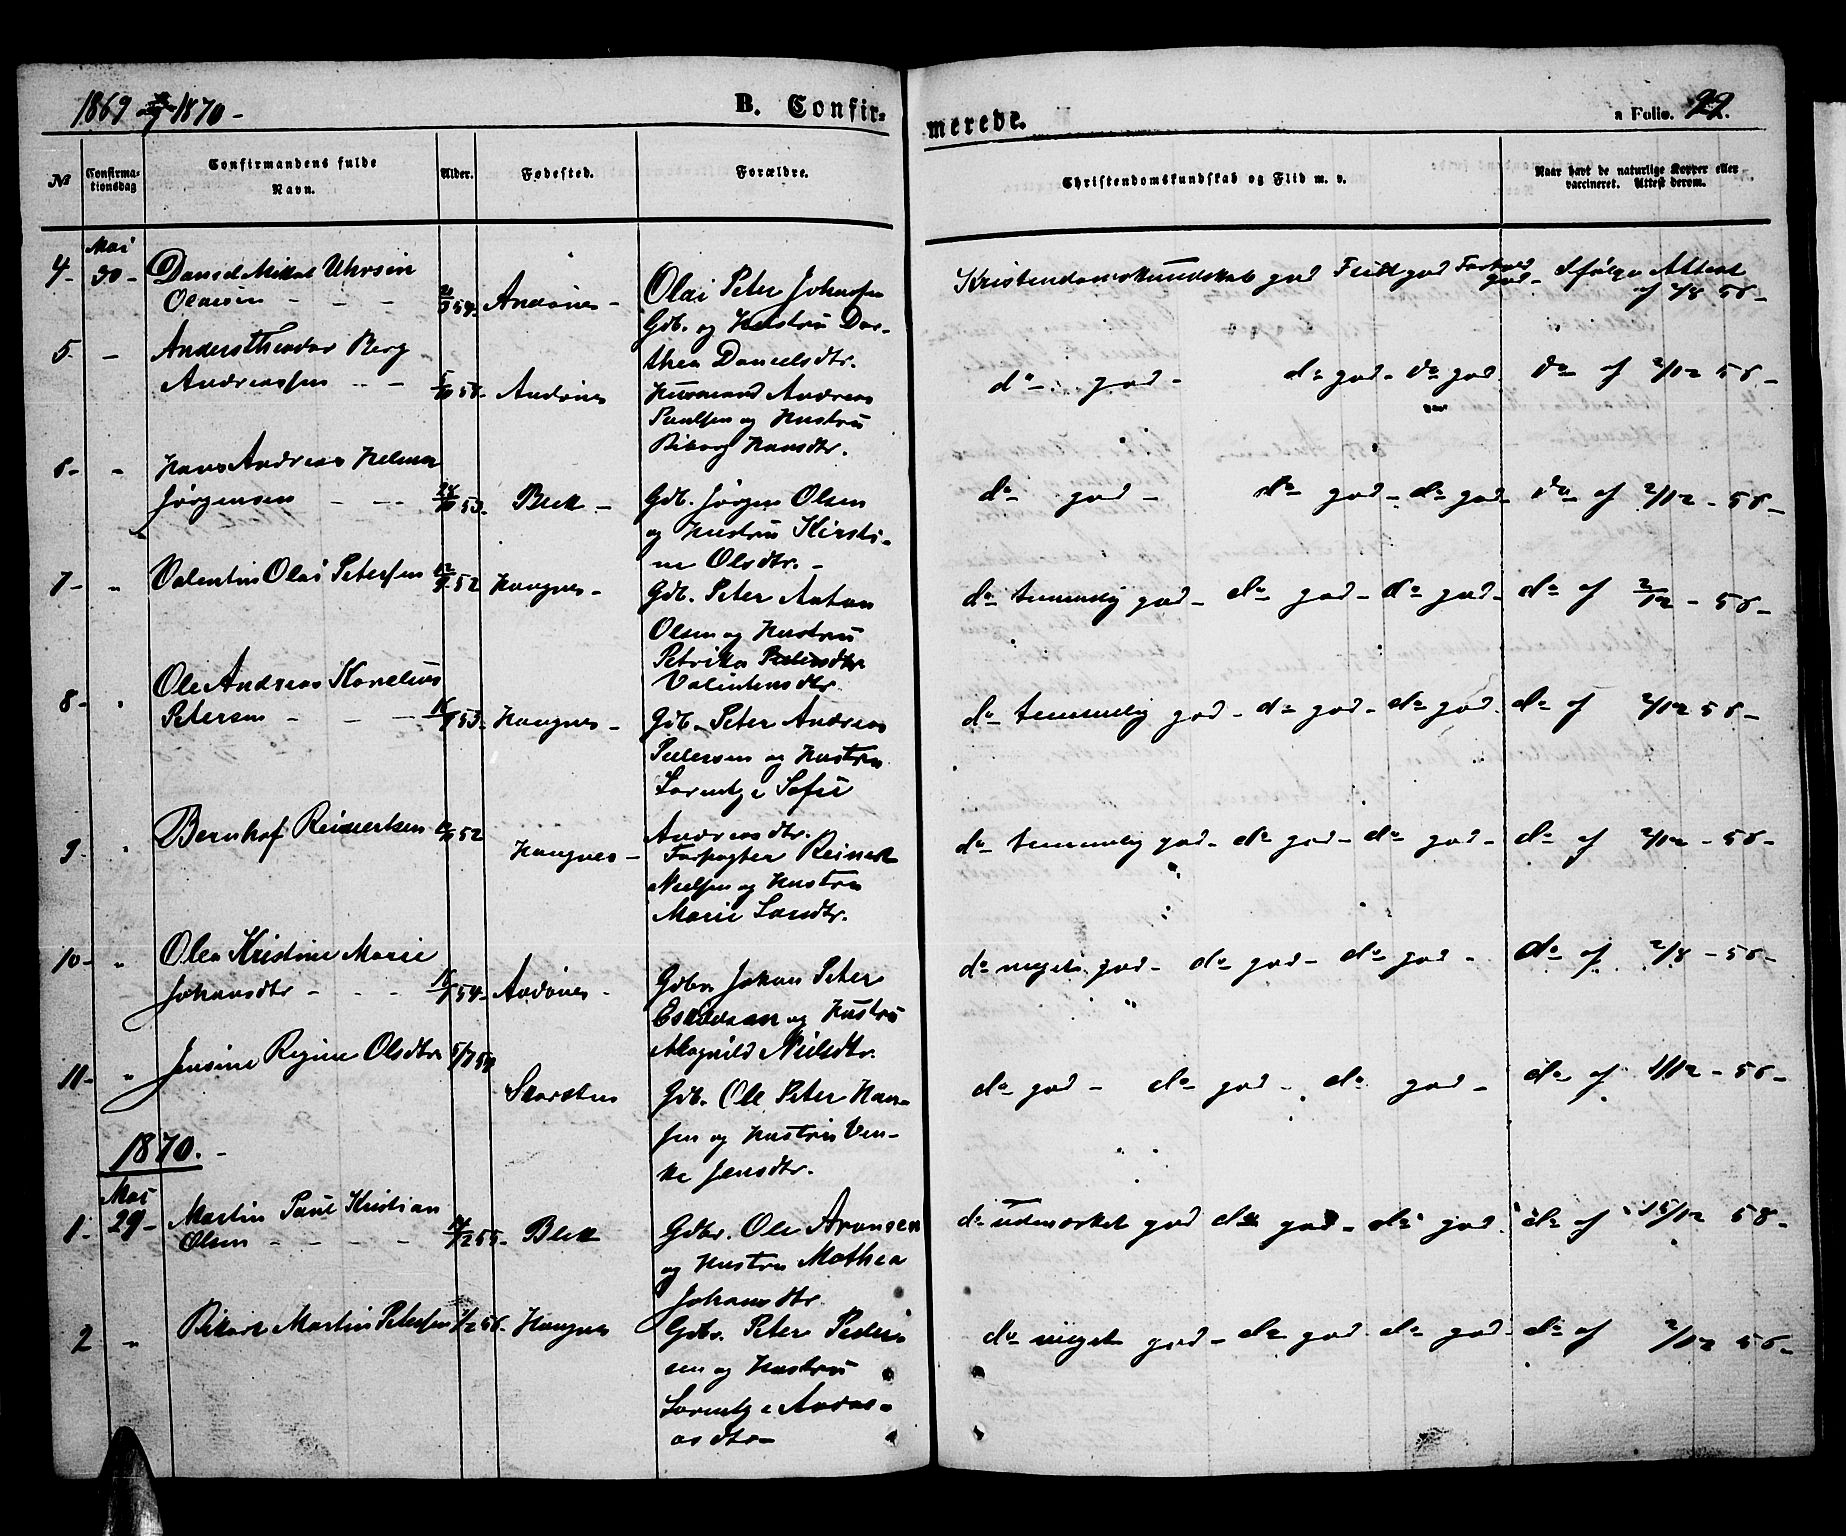 1869 og 1870 -
B. Confir-
merede.
a Folio. 22.
№
Confirma-
tionsdag
Confirmandens fulde
Navn.
Alder.
Fødested.
Forældre.
Christendomskundskab og Flid m. v.
Naar havt de naturlige Kopper eller
vaccineret. Attest derom.
Mai
4- 30- Daniel Mikal
Olaisen - - - 54. Andønes -
Olai Peter Johnsen
Gdb. og Hustru Dor-
thea Danielsdtr.
Kristendomskundskab god Flid god Forhold god- Ifølge Attest
af 2/8 56-
5- - Anders Theodor Berg
Andreassen - - Andønes
Huusmand Andreas
Paulsen og Hustru
Hansdtr.
do god- do god- do god do af 2/12 56-
6- " Hans Andreas Helmer
Jørgensen - - 53. Blek -
Gdb. Jørgen Olsen
og Hustru Kirsti-
ne Olsdtr. -
do god- do god- do god- do af 2/12 - 56-
7- " Valentin Olai Petersen 52 Haugnes-
Gdb. Peter Anton
Olsen og Hustru
Petrika Pedersdtr
Valentinsdtr.
do temmelig god- do god- do god- do af 2/12 - 56-
8- " Ole Andreas Kornelius
Petersen - - - 53. Haugnes -
Gdb. Peter Andreas
Pedersen og Hustru
Lorentze Sofie
Andreasdtr.
do temmelig god- do god- do god- do af 2/12 56-
9- " Bernhof Reinertsen 52
Haugnes-
Forpagter Reinert
Nielsen og Hustru
Marie Larsdtr.
do temmelig god- do god- do god- do af 2/12 - 56-
10- " Olea Kristine Marie
Johansdtr - - - 54- Andønes -
Gdbr Johan Peter
og Hustru
Magnild Nielsdtr.
do meget god- do god- do god- do af 2/8 - 56-
11- " Jensine Regine Olsdtr 5/7
Skarsten
Gdb. Ole Peter Han-
sen og Hustru Ven-
ke Jensdtr.
do god- do god- do god- do af 1/12 - 56-
1870. -
Mai
1- 29- Martin Paul Kristian
Olsen - - - - 55- Blek
Gdbr. Ole Aronsen
og Hustru Mathea
Johansdtr.
do udmærket god do god- do god. do af 15/12 58-
2 " Rikart Martin Petersen 56- Haugnes
Gdbr. Peter Peder-
sen og Hustru
Lorentze Andrea-
asdtr-
do meget god- do god do god- do af 2/12 56-